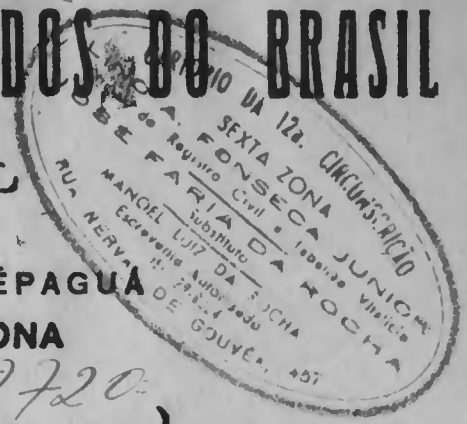 DOS DO BRASIL
CARTORIO DA 12a. CIRCUNSCRIÇÃO
SEXTA ZONA
A. FONSECA JUNIOR
do Registro Civil e Tabelião Vitalício
JOSÉ FARIA DA ROCHA
Substituto
MANOEL LUIZ DA ROCHA
Escrevente Autorizado
RUA NERVAL DE GOUVÊA, 457
ÉPAGUÁ
ONA
9720